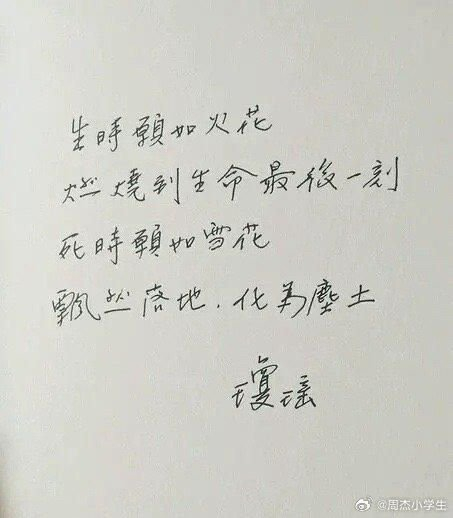 生時願如火花
燃燒到生命最後一刻
死時願如雪花
飄然落地.化為塵土
瓊瑤
@周杰小学生